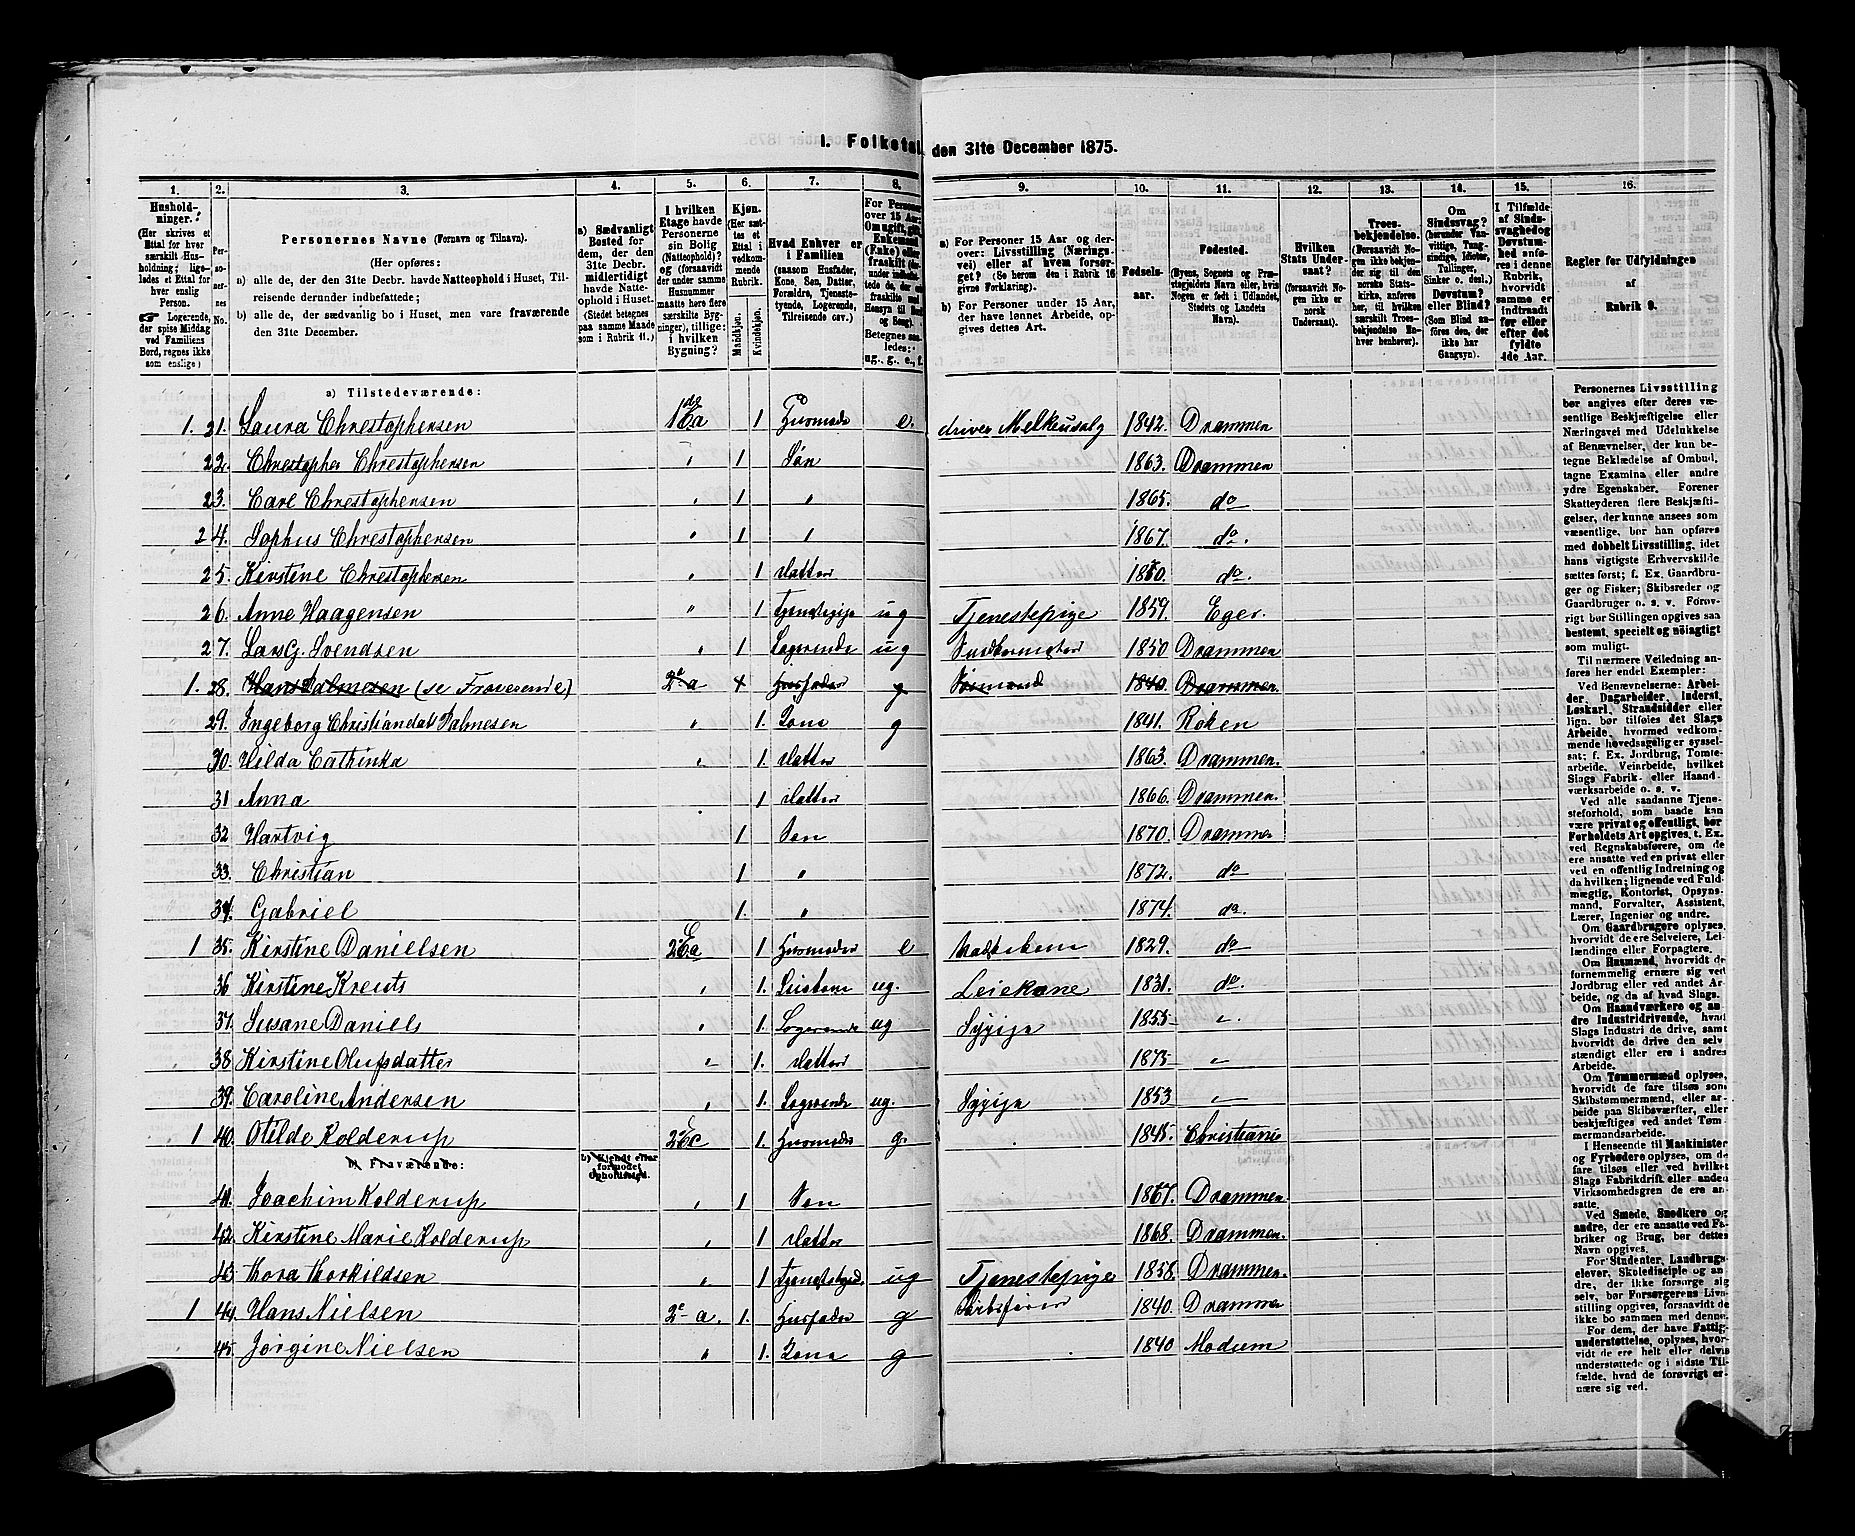 1. Folketal den 31te December 1875.
1. 2. 3. 4. 5. 6. 7. 8. 9. 10. 11. 12. 13. 14. 15. 16.
Hushold-
ninger.
(Her skrives et
Ettal for hver
særskilt Hus-
holdning; lige-
ledes et Ettal for
hver enslig
Person.
☞ Logerende,
der spise Middag
ved Familiens
Bord, regnes ikke
som enslige.)
Per-
so-
ner-
nes
No.
Personernes Navne (Fornavn og Tilnavn).
(Her opføres:
a) alle de, der den 31te Decbr. havde Natteophold i Huset, Til-
reisende derunder indbefattede;
b) alle de, der sædvanlig bo i Huset, men vare fraværende
den 31te December.
a) Sædvanligt
Bosted for
dem, der den
31te Decbr.
midlertidigt
havde Natte-
ophold i Huset.
(Stedet betegnes
paa samme Maade
som i Rubrik 11.)
I hvilken
Etage havde
Personerne
sin Bolig
(Natteophold)?
og (forsaavidt
der under samme
Husnummer
maatte høre flere
særskilte Byg-
ninger), tillige:
i hvilken
Bygning?
Kjøn.
(Her sæt-
tes et
Ettal i
vedkom-
mende
Rubrik.
Mandkjøn.
Kvindekjøn.
Hvad Enhver er
i Familien
(saasom Husfader,
Kone, Søn, Datter,
Forældre, Tjeneste-
tyende, Logerende,
Tilreisende osv.)
For Personer
over 15 Aar:
Om ugift, gift,
Enkemand
(Enke) eller
fraskilt
Betegnes saa-
ledes:
ug., g., e., f.
a) For Personer 15 Aar og der-
over: Livsstilling (Nærings-
vei) eller af hvem forsør-
get? (Se herom den i Rubrik 16
givne Forklaring).
b) For Personer under 15 Aar,
der have lønnet Arbeide, op-
gives dettes Art.
Fødsels-
aar.
Fødested.
(Byens, Sognets og Præ-
stegjeldets Navn eller, hvis
Nogen er født i Udlandet,
Stedets og Landets
Navn).
Hvilken
Stats Under-
saat?
(forsaavidt No-
gen ikke er
norsk
Undersaat).
Troes-
bekjendelse.
(Forsaavidt No-
gen ikke bekjen-
der sig til den
norske Stats-
kirke, anføres
her, til hvilket
særskilt Troes-
bekjendelse En-
hver henhører).
Om
Sindssvag?
(herunder Van-
vittige, Tung-
sindige, Idioter,
Tullinger,
Sinker o. desl.)
Døvstum?
eller Blind? (Som Blind an-
føres den, der
ikke har
Gangsyn).
I Tilfælde
af Sinds-
svaghed og
Døvstum-
hed anfø-
res i denne
Rubrik,
hvorvidt
samme er
indtraadt
før eller
efter det
fyldte
4de Aar.
Regler for Udfyldningen
af
Rubrik 9.
a) Tilstedeværende:
1. 21. Laura Chrestophersen 1de Ea 1 Husmoder e. driver Melkeusalg 1842. Drammen
22. Chrestopher Chrestophersen " 1 Søn 1863. Drammen
23. Carl Chrestophersen " 1 " 1865. do
24. Sophus Chrestophersen " 1 " 1867. do.
25. Kirstine Chrestophersen 1 Datter 1870. do.
26. Anne Haagensen " 1 Tjenestepige ug Tjenestepige 1859. Eger.
27. Lars G. Svendsen " 1 Logerende ug 1850 Drammen
1. 28. Hans Dalmesen (se Fraverende) 2e a x Husfader g 1840. Drammen.
29. Ingeborg Christiandatt Dalmesen " 1. Kone g 1841. Røken
30. Hilda Cathinka " 1. Datter 1863. Drammen.
31 Anna 1 Datter 1866. Drammen.
32 Hartvig 1 Søn 1870. Drammen
33. Christian 1 " 1872. do
34. Gabriel 1. " 1874. do.
1 35. Kirstine Danielsen 2 E a 1 Husmoder e 1829. do
36 Kirstine Kreuts " 1. ug. Leiekone 1831. do.
37. Susane Daniels " 1. Logerende ug Sypige 1855 "
38 Kirstine Olufsdatter " 1. Datter 1875 "
39. Caroline Andersen " 1. Logerende ug. Sypige 1853 "
1 40. Otilde Kolderup 2 E c 1. Husmoder g. 1845. Christiania
b) Fraværende:
b) Kjendt eller
formodet
Opholdssted.
41. Joachim Kolderup " 1 Søn 1867. Drammen.
42. Kirstine Marie Kolderup " 1 Datter 1868. Drammen.
43. Thora Thorkildsen " 1 ug Tjenestepige 1858. Drammen.
1 44. Hans Nielsen 2e a. 1. Husfader g 1840. Drammen
45. Jørgine Nielsen " 1. Kone g 1840 Modum
Personernes Livsstilling
bør angives efter deres væ-
sentlige Beskjæftigelse eller
Næringsvei med Udelukkelse
af Benævnelser, der kun be-
tegne Beklædelse af Ombud,
tagne Examina eller andre
ydre Egenskaber. Forener
Skatteyderen flere Beskjæfti-
gelser, der kunne ansees som
væsentlige, bør han opføres
med dobbelt Livsstilling, idet
hans vigtigste Erhvervskilde
sættes først; f. Ex. Gaardbru-
ger og Fisker; Skibsreder og
Gaardbruger o. s. v. Forøv-
rigt bør Stillingen opgives saa
bestemt, specielt og nøiagtigt
som muligt.
Til nærmere Veiledning an-
føres her endel Exempler:
Ved Benævnelserne: Arbei-
der, Dagarbeider, Inderst,
Løskarl, Strandsidder eller
lign. bør tilføies det Slags
Arbeide, hvormed vedkom-
mende hovedsagelig er syssel-
sat; f. Ex. Jordbrug, Tomte-
arbeide, Veiarbeide, hvilket
Slags Fabrik- eller Haand-
værksarbeide o. s. v.
Ved alle saadanne Tjene-
steforhold, som baade kan
være privat og offentligt, bør
Forholdets Art opgives, t. Ex.
ved Regnskabsførere, om de
ere ansatte ved en privat eller
en offentlig Indretning og
da hvilken; lignende ved Fuld-
mægtig, Kontorist, Opsyns-
mand, Forvalter, Assistent,
Lærer, Ingeniør og andre.
Om Gaardbrugere oplyses,
hvorvidt de ere Selveiere, Lei-
lændinge eller Forpagtere.
Om Husmænd, hvorvidt de
fornemmelig ernære sig ved
Jordbrug eller ved andet Ar-
beide, og da af hvad Slags.
Om Haandværkere og an-
dre Industridrivende, hvad
Slags Industri de drive, samt
hvorvidt de drive den selv-
stændigt eller ere i andres
Arbeide.
Om Tømmermænd oplyses,
hvorvidt de fare tilsøs som
Skibstømmermænd, eller ar-
beide paa Skibsværfter, eller
beskjæftiges ved andet Tøm-
mermandsarbeide.
I Henseende til Maskinister
og Fyrbødere oplyses, om de
fare tilsøs eller ved hvilket
Slags Fabrikdrift eller anden
Virksomhedsgren de ere an-
satte.
Ved Smede, Snedkere og
andre, der ere ansatte ved Fa-
briker og Brug, bør dettes
Navn opgives.
For Studenter, Landbrugs-
elever, Skoledisciple og an-
dre, der ikke forsørge sig
selv, bør Forsørgerens Livs-
stilling opgives, forsaavidt de
ikke bo sammen med denne.
For dem, der have Fattig-
understøttelse, oplyses, hvor-
vidt de ere helt eller delvis
understøttede og i sidste Til-
fælde, hvad de forøvrigt er-
nære sig ved.